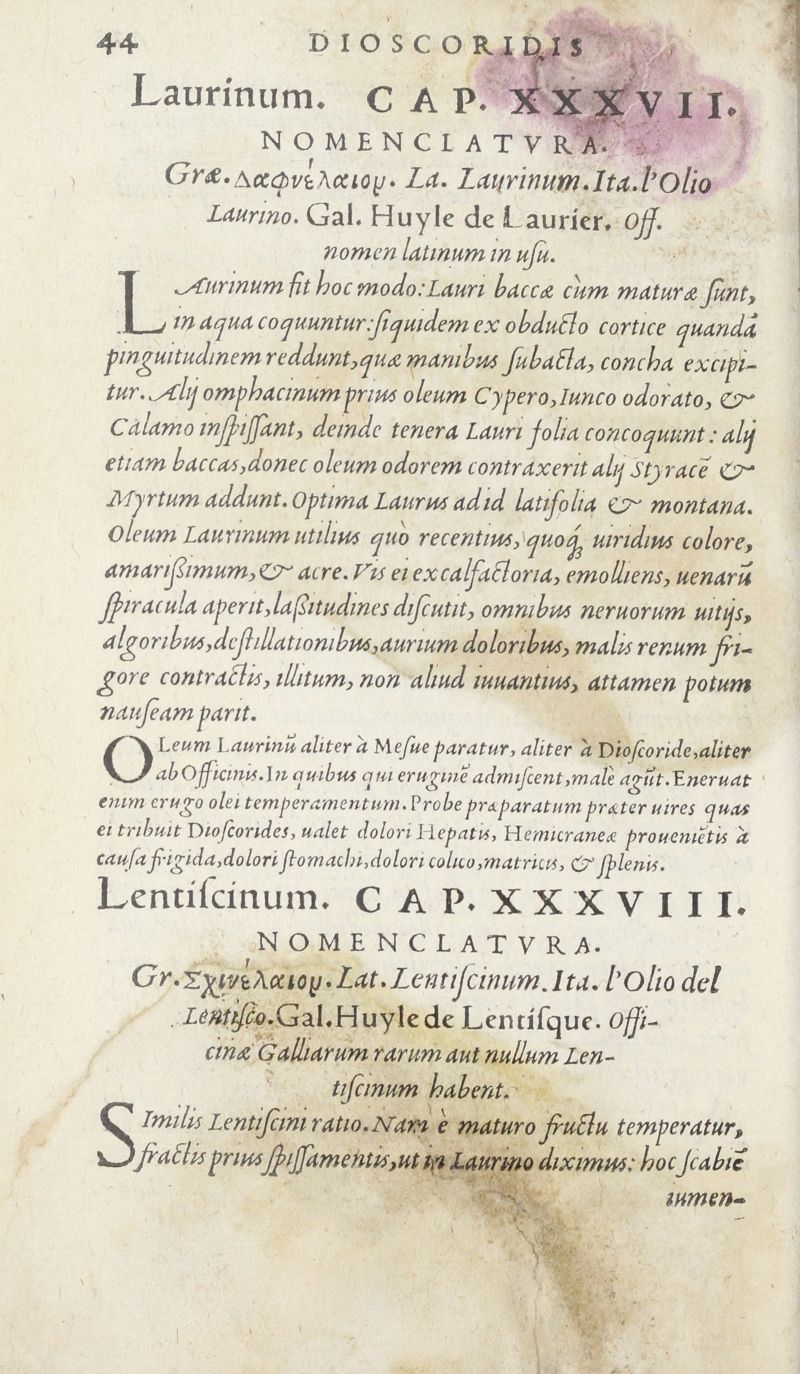 44 DIOSCORIDIS
Laurinum. CAP. XXXVII.
NOMENCLATVRA.
Græ. Δαφνέλαιον. La. Laurinum. Ita. l'Olio
Laurino. Gal. Huyle de Laurier. Off.
nomen latinum in uſu.
LAurinum fit hoc modo: Lauri baccæ cùm maturæ ſunt,
in aqua coquuntur: ſiquidem ex obducto cortice quandā
pinguitudinem reddunt, quæ manibus ſubacta, concha excipi-
tur. Alij omphacinum prius oleum Cypero, Iunco odorato, &
Calamo inſpiſſant, deinde tenera Lauri folia concoquunt: alij
etiam baccas, donec oleum odorem contraxerit alij Styracē &
Myrtum addunt. Optima Laurus ad id latifolia & montana.
Oleum Laurinum utilius quò recentius, quoq́ʒ uiridius colore,
amariſsimum, & acre. Vis ei excalfactoria, emolliens, uenarū
ſpiracula aperit, laſsitudines diſcutit, omnibus neruorum uitijs,
algoribus, deſtillationibus, aurium doloribus, malis renum fri-
gore contractis, illitum, non aliud iuuantius, attamen potum
nauſeam parit.
OLeum Laurinū aliter à Meſue paratur, aliter à Dioſcoride, aliter
ab Officinis. In quibus qui eruginē admiſcent, malè agūt. Eneruat
enim erugo olei temperamentum. Probe præparatum præter uires quas
ei tribuit Dioſcorides, ualet dolori Hepatis, Hemicraneæ proueniētis à
cauſa frigida, dolori ſtomachi, dolori colico, matricis, & ſplenis.
Lentiſcinum. CAP. XXXVIII.
NOMENCLATVRA.
Gr. Σχινέλαιον. Lat. Lentiſcinum. Ita. l'Olio del
Lentiſco. Gal. Huyle de Lentiſque. Offi-
cinæ Galliarum rarum aut nullum Len-
tiſcinum habent.
SImilis Lentiſcini ratio. Nam è maturo fructu temperatur,
fractis prius ſpiſſamentis, ut in Laurino diximus: hoc ſcabiē
iumen-